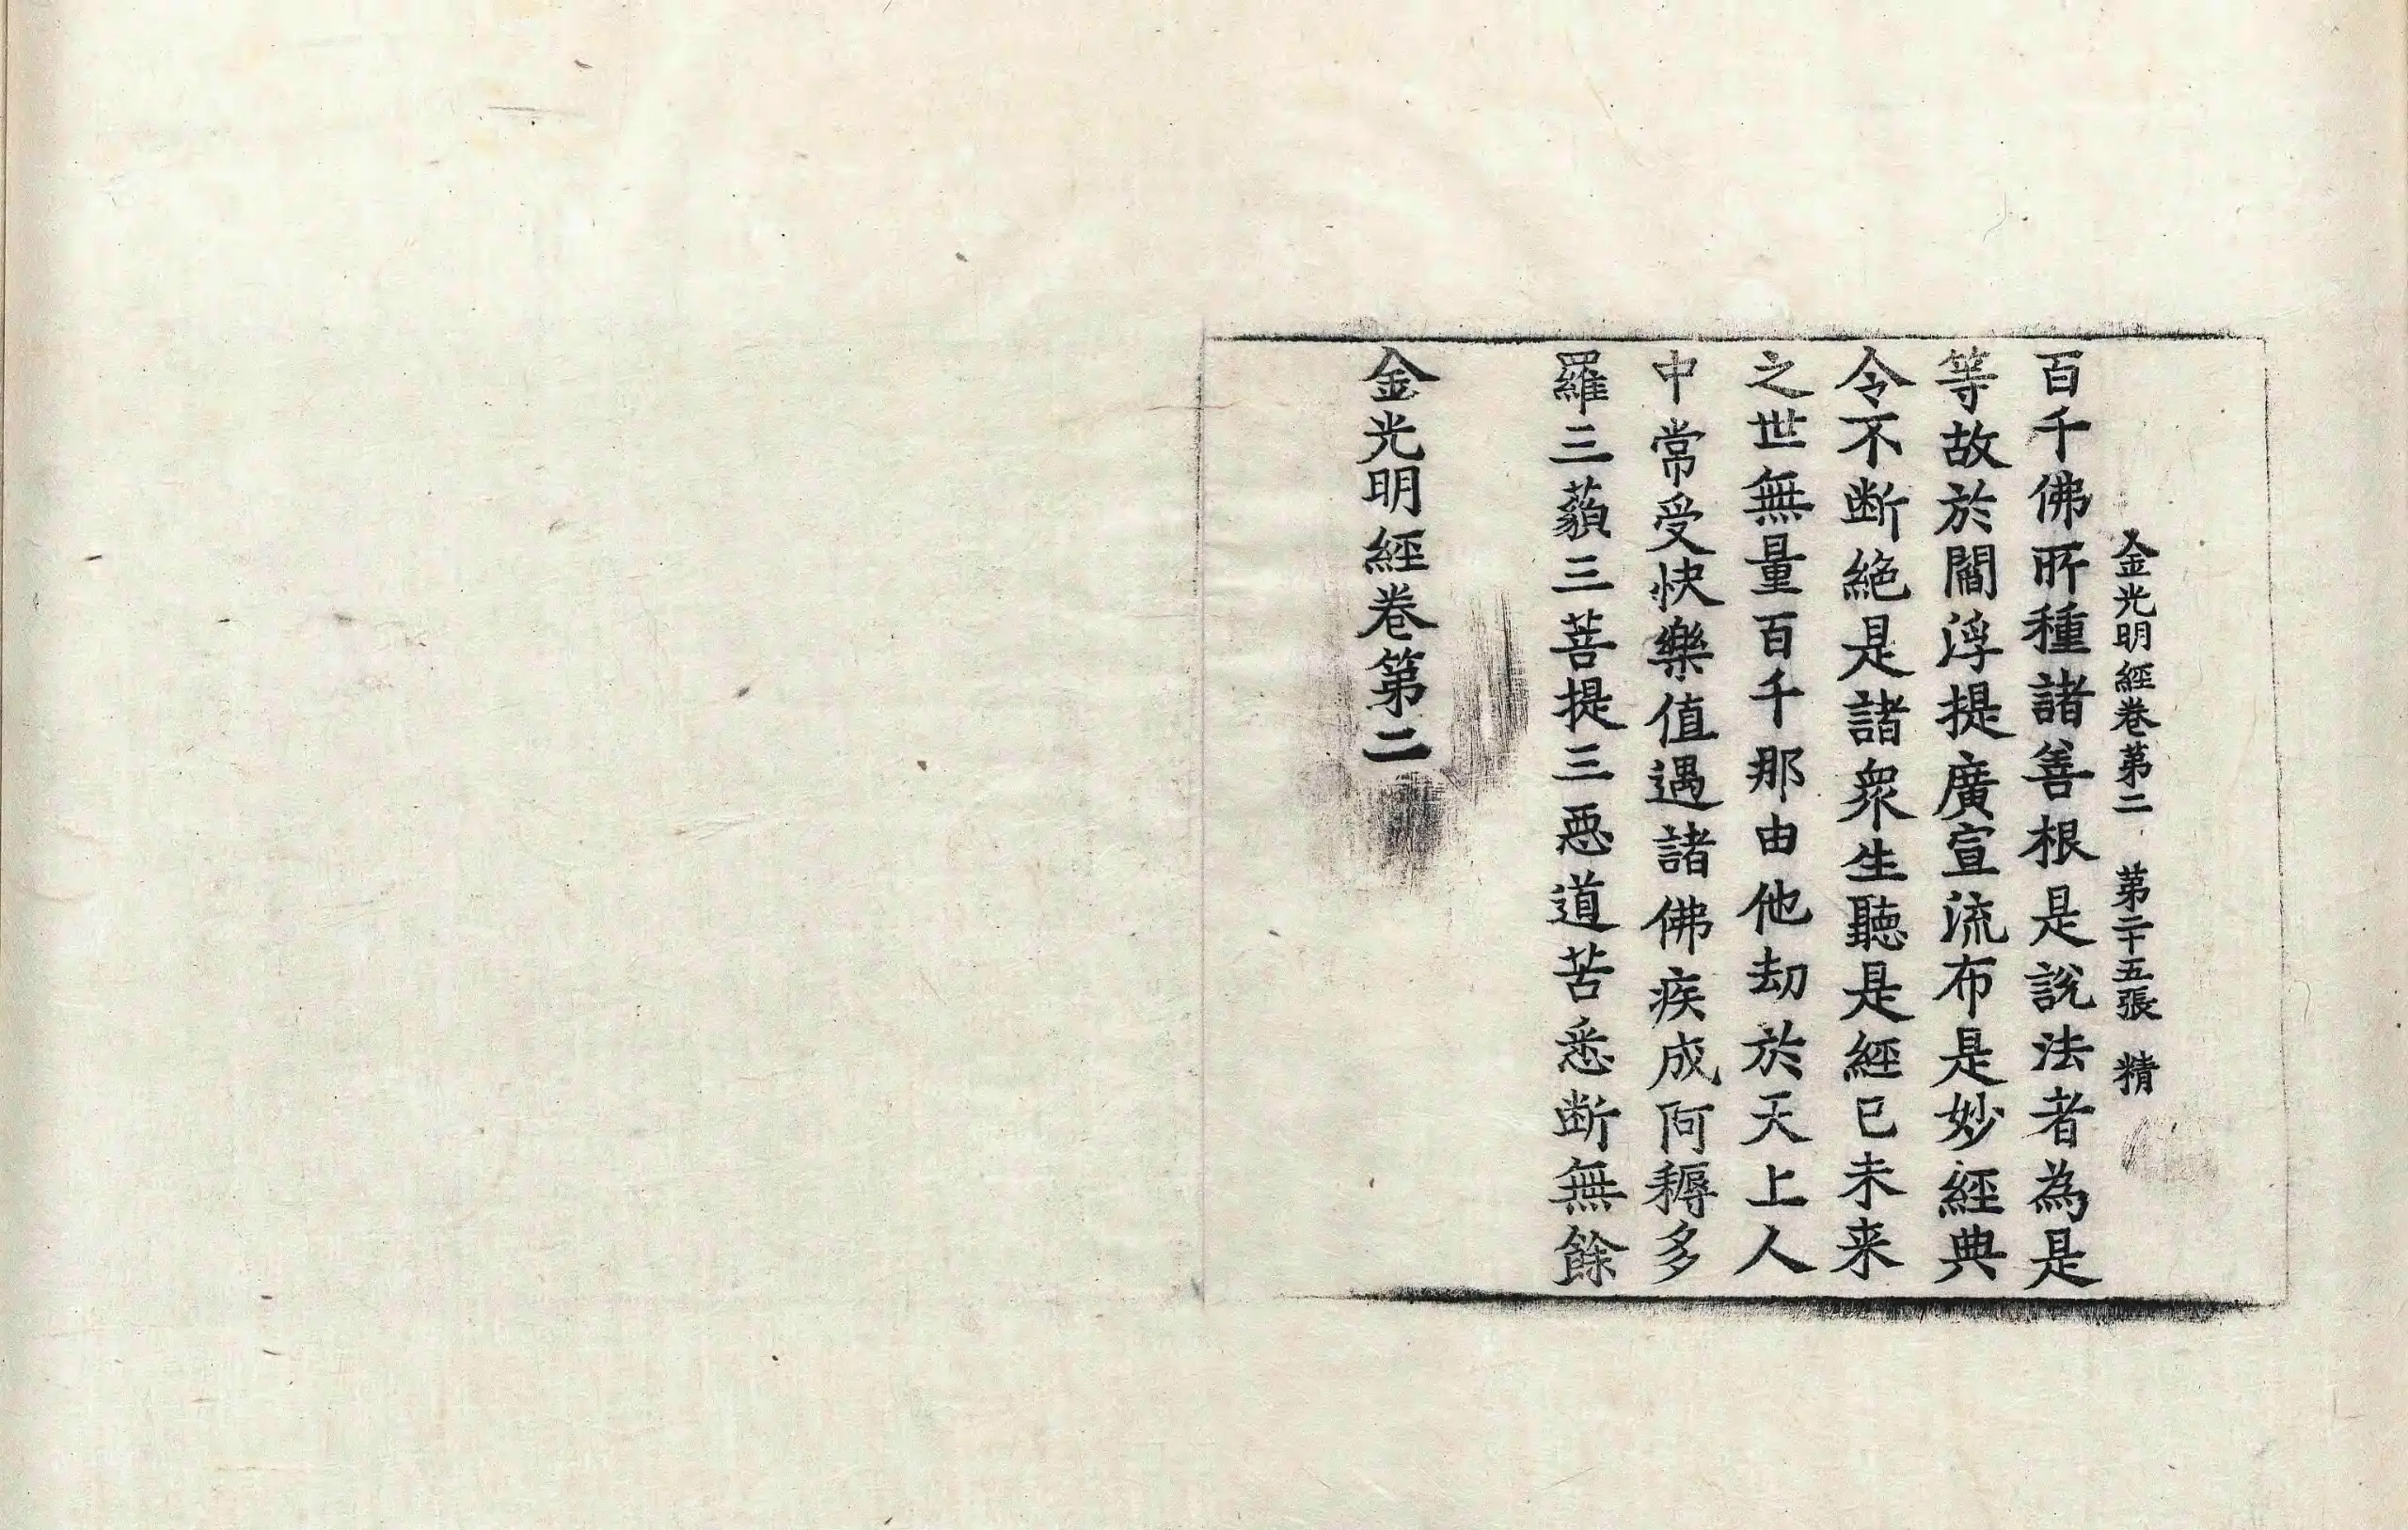 金光明經卷第二　第二十五張　精
百千佛所種諸善根是說法者為是
等故於閻浮提廣宣流布是妙經典
令不断絕是諸衆生聽是經已未来
之世無量百千那由他劫於天上人
中常受快樂值遇諸佛疾成阿耨多
羅三藐三菩提三惡道苦悉断無餘
金光明經卷第二